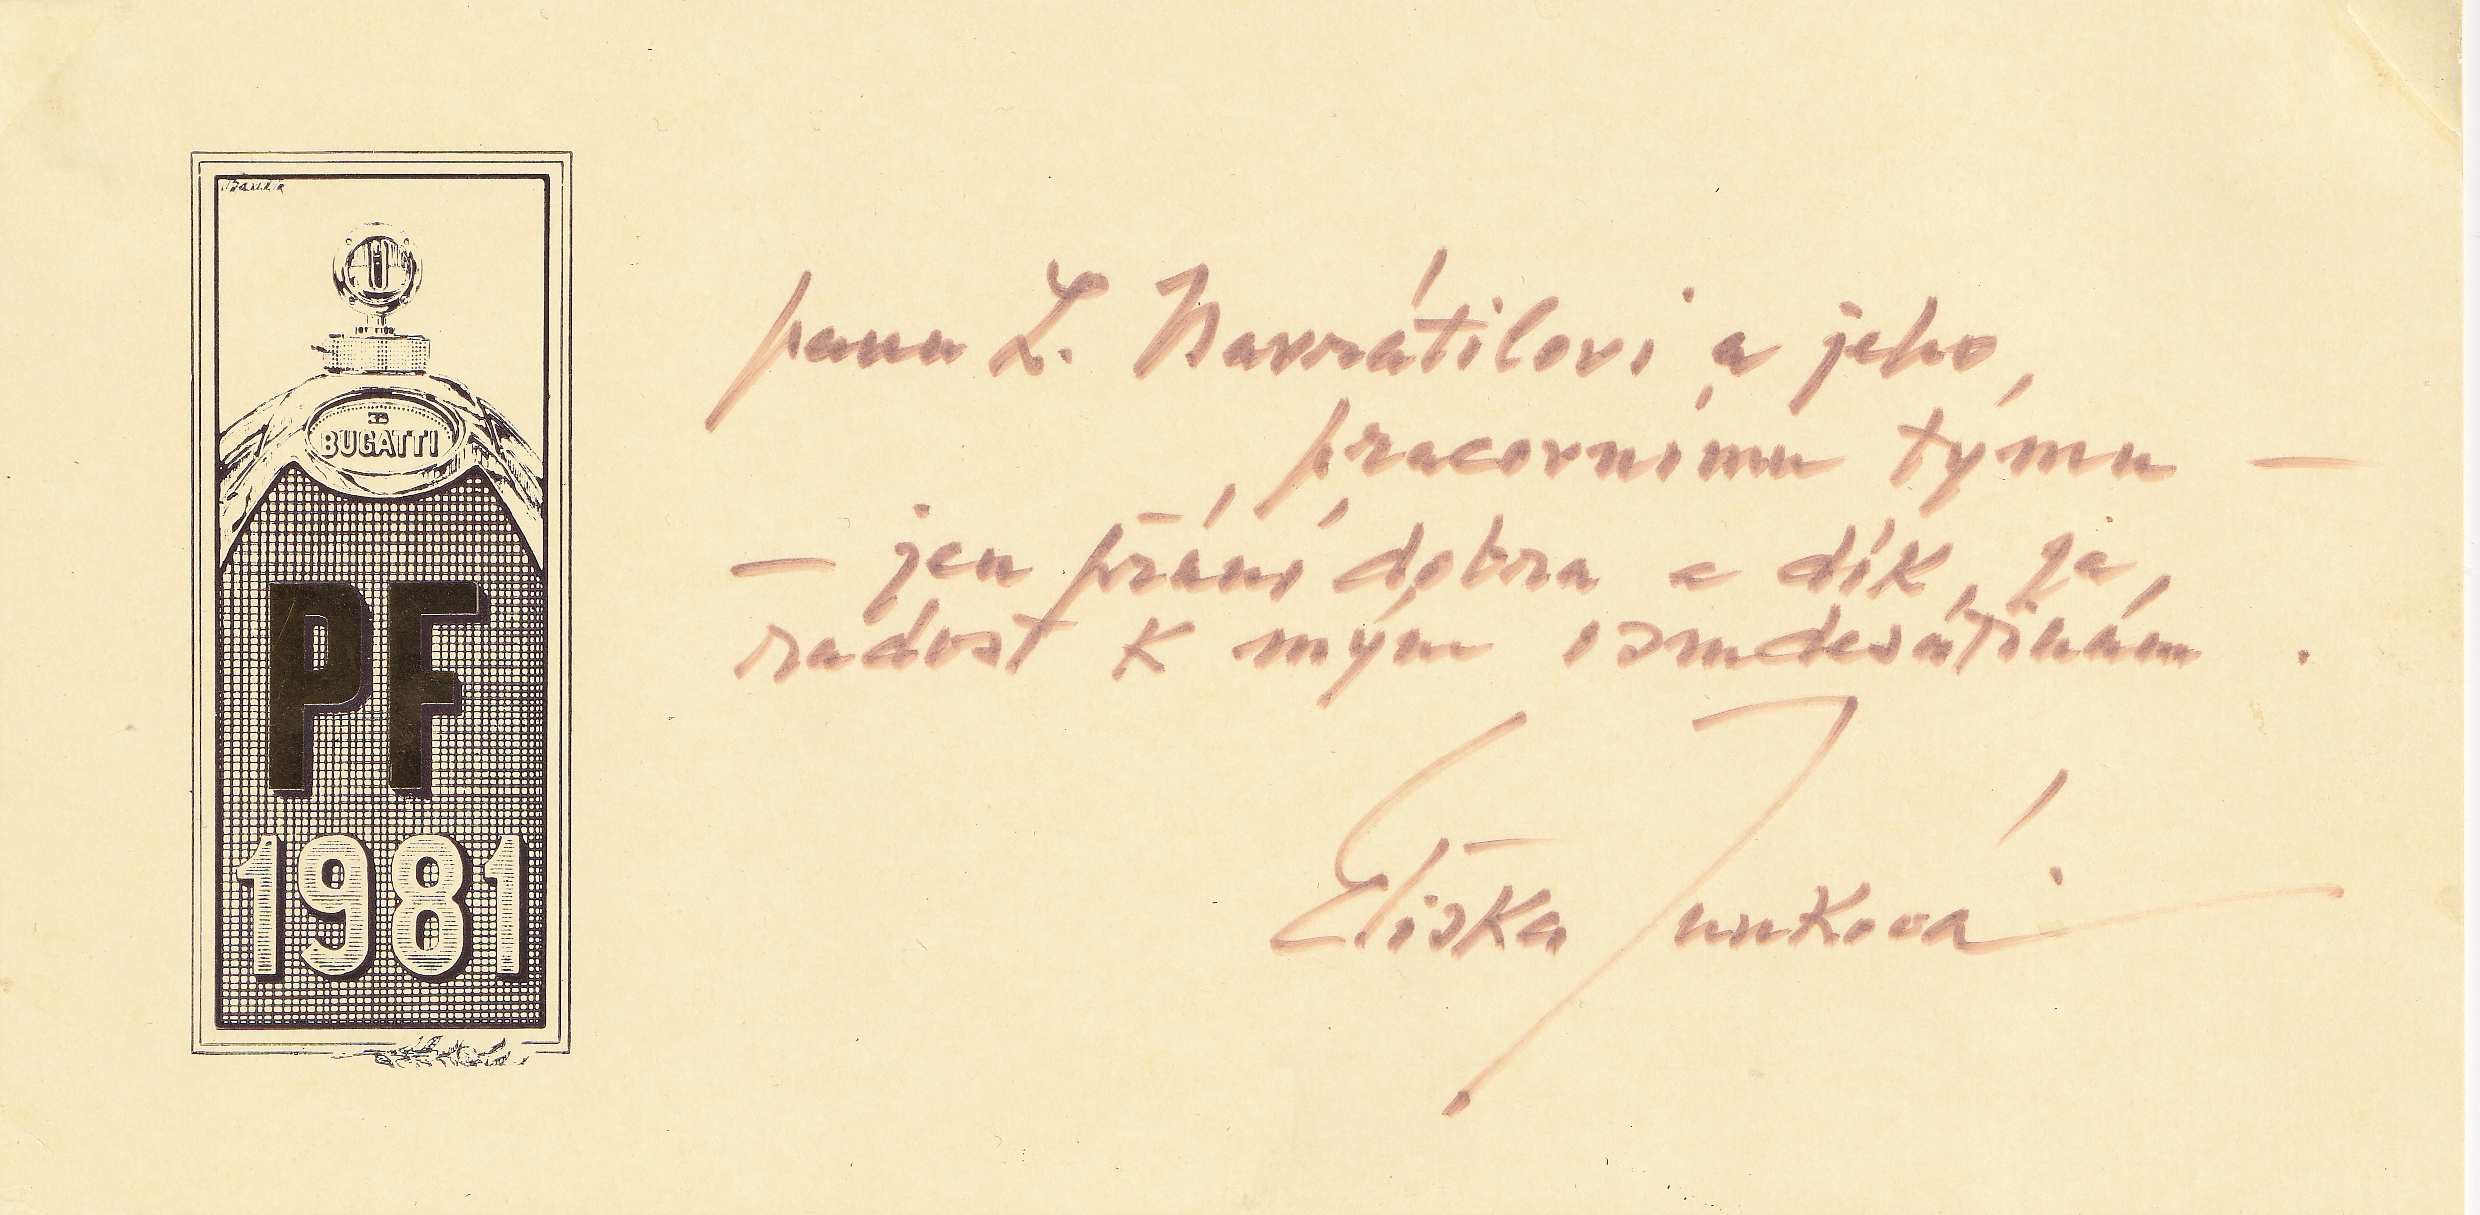 EB
BUGATTI
PF
1981
panu L. Navrátilovi a jeho
pracovnímu týmu –
– jen přání dobra a dík za
radost k mým osmdesátinám.
Eliška Junková